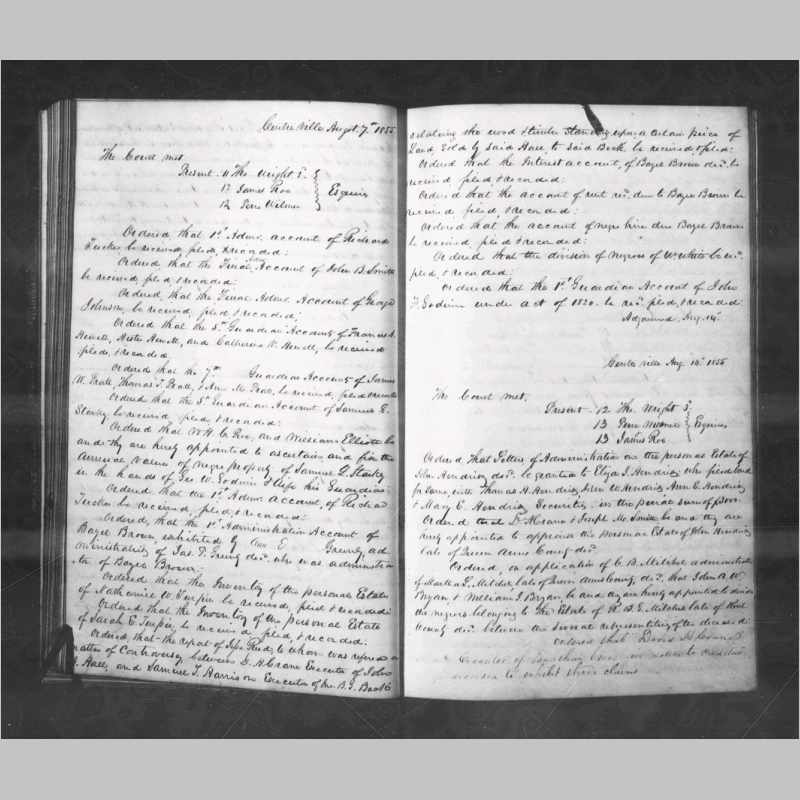 Centre Ville Augst. 7th 1855
The Court met
Present 11 Tho. Wright 3d.
13 James Roe Esquires
12 Pere Wilmer
Ordered that 1st Admr. account of Richard
Tucker be received, filed & recorded:
Ordered, that the Final Account of John B. Smith
be received, filed & recorded:
Ordered, that the Final Admr Account of George
Johnson, be received, filed & recorded;
Ordered that the Guardian Account of Frances A.
Hewett, Hester Hewett, and Catherine W. Hewett, be received
filed, & recorded.
Ordered that the 7th Guardian Account of James
W. Pratt, Thomas T. Pratt, & Ann M. Pratt, be received, filed & recorded
Ordered that the Guardian Account of Samuel E.
Starkey be received, filed & recorded:
Ordered that W. H. C. Roe, and William Elliott be
and they are hereby appointed to ascertain and fix the
annual value of negro property of Samuel E. Starkey
in the hands of Geo W. Godwin & Wife his Guardian:
Ordered that the 1st Admr. account, of Richard
Tucker be received, filed, & recorded:
Ordered, that the 1st Administration Account of
Bayer Brown, exhibited by E Greenly, ad
ministratrix of Jas. T. Greenly decd. who was administra
tor of Bayer Brown:
Ordered that the Inventory of the personal Estate
of Nathaniel W. Turpin be received, filed & recorded:
Ordered that the Inventory of the personal Estate
of Sarah E. Turpin be received, filed, & recorded:
Ordered, that the report of John Reed, to whom was referred
matter of Controversy between G. H. Crane Executor of John
Hall, and Samuel T. Harrison Executor of B. G. Beck
relating the wood & timber standing upon a certain piece of
Land sold by Said Hall to Said Beck be received, & filed:
Ordered that the Interest account, of Bayer Brown decd. be
received filed & recorded:
Ordered that the account of rent due to Bayer Brown be
received filed, & recorded:
Ordered that the account of negro hire due Bayer Brown
be received, filed & recorded:
Ordered that the division of negroes of W. White be recd.
filed, & recorded:
Ordered that the 1st Guardian Account of John
F. Godwin under act of 1820. be recd. filed, & recorded:
Adjourned, Aug 14th
Centre Ville Aug. 14th 1855
The Court met.
Present 12 Tho. Wright 3d.
13 Pere Wilmer Esquires
13 James Roe
Ordered That Letters of Administration on the personal Estate of
John Hendrix decd. be granted to Eliza J. Hendrix who filed bond
for Same, with Thomas H. Hendrix, John W Hendrix Ann E. Hendrix
& Mary C. Hendrix Securities in the penal sum of
Ordered that & Joseph M. Smith be and they are
hereby appointed to appraise the personal Estate of John Hendrix
late of Queen Anns County decd.
Ordered, on application of C. B. Mitchel administrator
of Martha E. Mitchel, late of Queen Anns County, decd. that John A. W.
Bryan & William J. Bryan be and they are hereby appointed to divide
the negroes belonging to the Estate of Mitchel late of Kent
County decd. between the several representatives of the deceased:
Ordered that
Executor of
to exhibit their claims